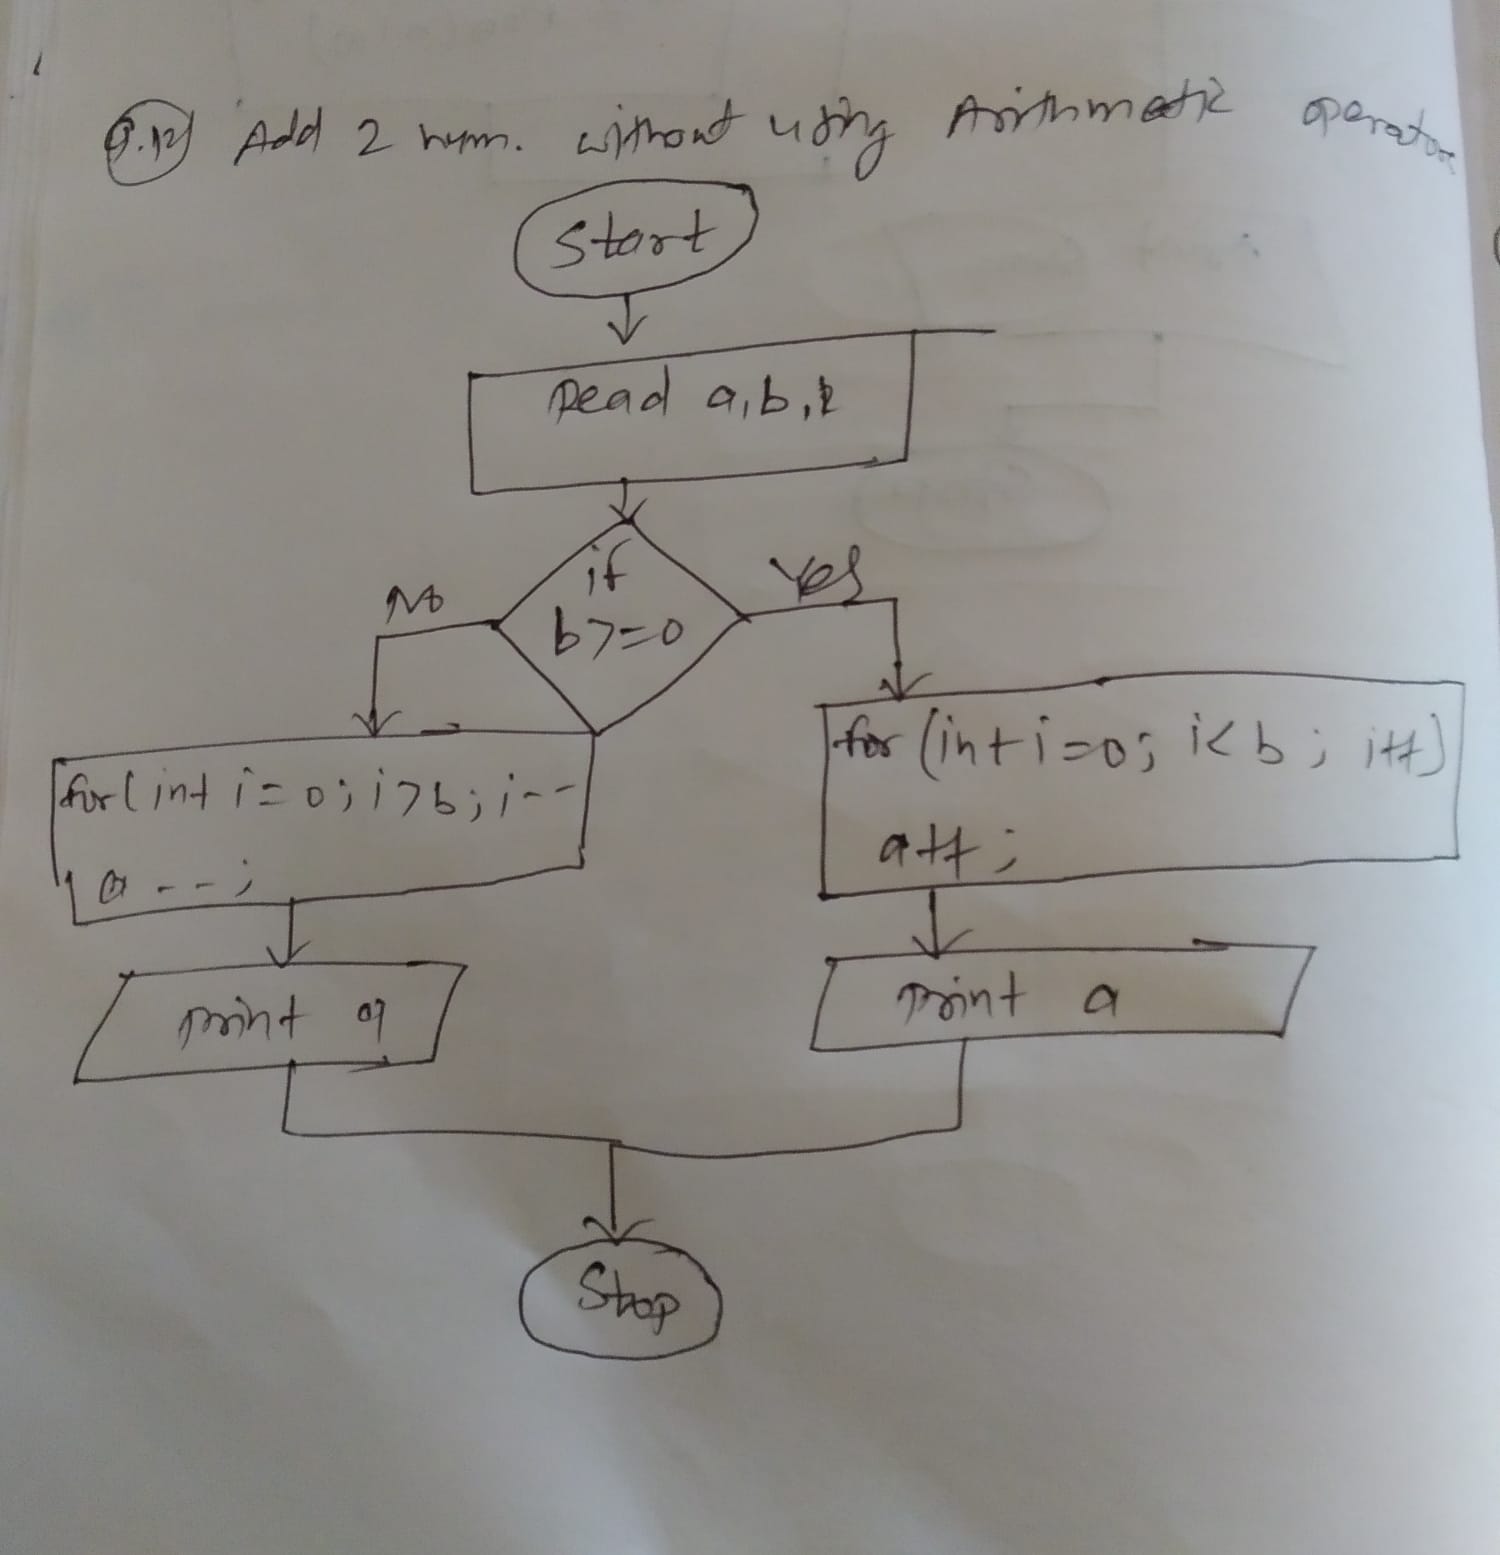 Q.12) Add 2 num. without using Arithmetic operator
Start
Read a, b,
if
b>=0
No
Yes
for(int i=0; i>b; i--
a--;
for (int i=0; i<b; i++)
a++;
print a
print a
Stop